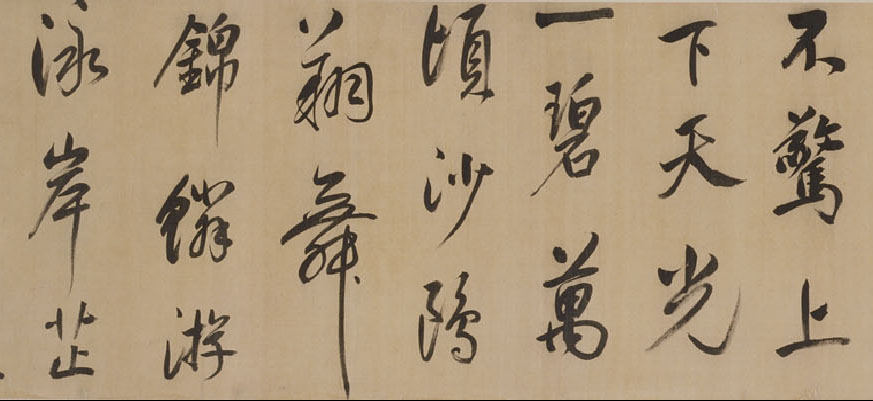 不驚上
下天光
一碧萬
頃沙鷗
翔舞
錦鱗游
泳岸芷